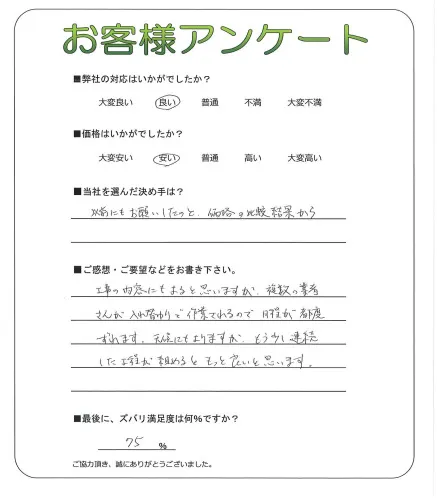 お客様アンケート
■弊社の対応はいかがでしたか？
大変良い 良い 普通 不満 大変不満
■価格はいかがでしたか？
大変安い 安い 普通 高い 大変高い
■当社を選んだ決め手は？
以前にもお願いしたのと、価格の比較結果から
■ご感想・ご要望などをお書き下さい。
工事の内容にもよると思いますが、複数の業者
さんが入れ替わりで作業されるので 日程が都度
ずれます。天候にもよりますが、もう少し連続
した工程が組めるともっと良いと思います。
■最後に、ズバリ満足度は何%ですか？
75 %
ご協力頂き、誠にありがとうございました。